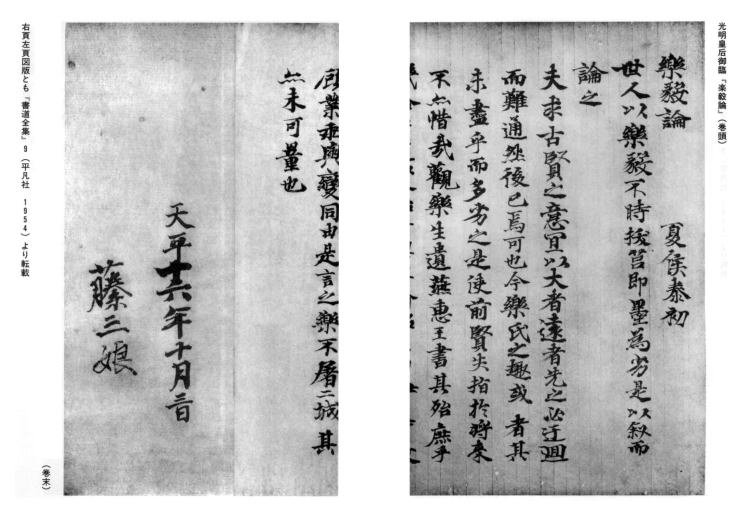 光明皇后御臨「楽毅論」（巻頭）
樂毅論 夏侯泰初
世人以樂毅不時拔莒即墨為劣是以叙而
論之
夫求古賢之意宜以大者遠者先之必迂迴
而難通然後已焉可也今樂氏之趣或者其
未盡乎而多劣之是使前賢失指於将来
不亦惜哉觀樂生遺燕惠王書其殆庶乎
顧業乖與變同由是言之樂不屠二城其
亦未可量也
天平十六年十月三日
藤三娘
（巻末）
右頁左頁図版とも『書道全集』9（平凡社 1954）より転載